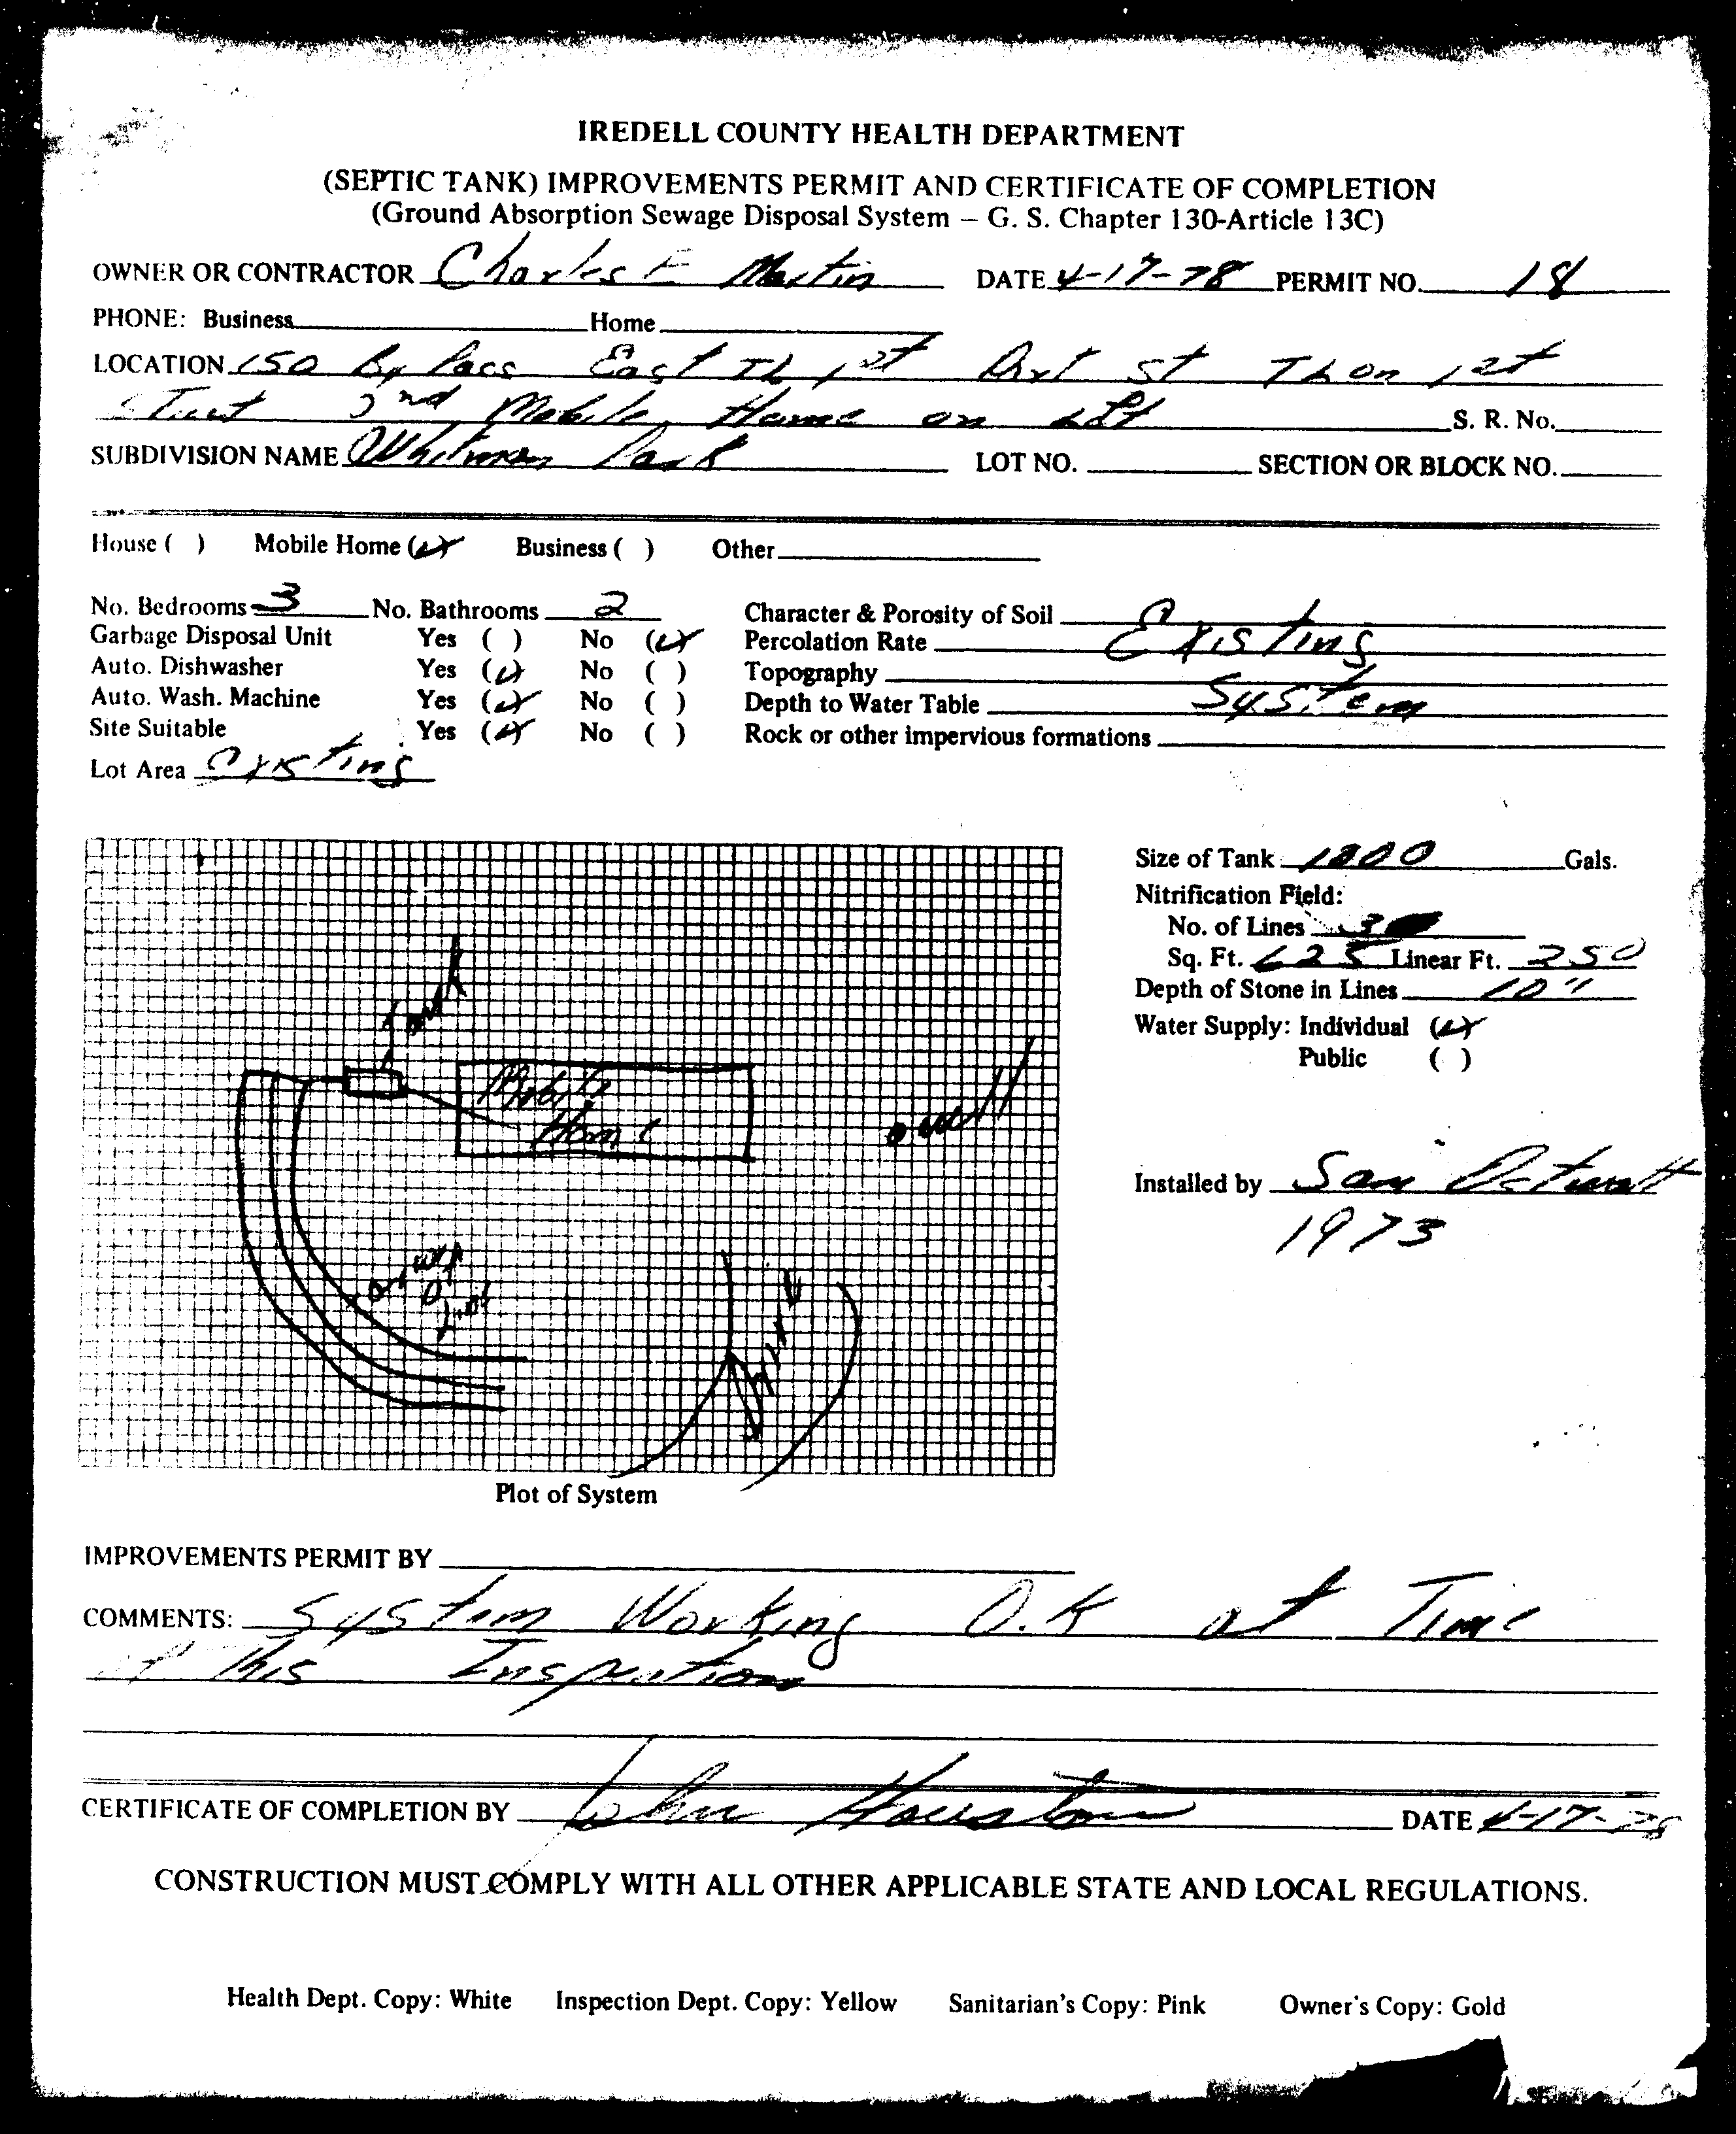 IREDELL COUNTY HEALTH DEPARTMENT
(SEPTIC TANK) IMPROVEMENTS PERMIT AND CERTIFICATE OF COMPLETION
(Ground Absorption Sewage Disposal System – G. S. Chapter 130-Article 13C)
OWNER OR CONTRACTOR Charles E Martin DATE 4-17-78 PERMIT NO. 18
PHONE: Business Home
LOCATION 150 By Pass East TL 1st Dirt St TL on 1st
2nd Mobile Home on Lft S. R. No.
SUBDIVISION NAME Whitman Park LOT NO. SECTION OR BLOCK NO.
House ( ) Mobile Home (✓) Business ( ) Other
No. Bedrooms 3 No. Bathrooms 2 Character & Porosity of Soil
Garbage Disposal Unit Yes ( ) No (✓) Percolation Rate Existing
Auto. Dishwasher Yes (✓) No ( ) Topography
Auto. Wash. Machine Yes (✓) No ( ) Depth to Water Table System
Site Suitable Yes (✓) No ( ) Rock or other impervious formations
Lot Area existing
Size of Tank 1000 Gals.
Nitrification Field:
No. of Lines 3
Sq. Ft. 625 Linear Ft. 250
Depth of Stone in Lines 10"
Water Supply: Individual (✓)
Public ( )
Installed by Sam
1973
Tank
Mobile
Home
well
Drive
Plot of System
IMPROVEMENTS PERMIT BY
COMMENTS: System Working O.K at Time
of This Inspection
CERTIFICATE OF COMPLETION BY John Houston DATE 4-17-78
CONSTRUCTION MUST COMPLY WITH ALL OTHER APPLICABLE STATE AND LOCAL REGULATIONS.
Health Dept. Copy: White Inspection Dept. Copy: Yellow Sanitarian's Copy: Pink Owner's Copy: Gold